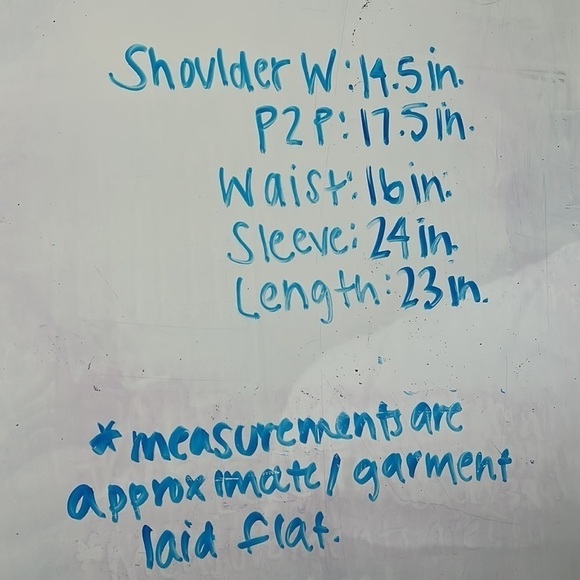 Shoulder W: 14.5 in.
P2P: 17.5 in.
Waist: 16 in.
Sleeve: 24 in.
Length: 23 in.
* measurements are
approximate / garment
laid flat.